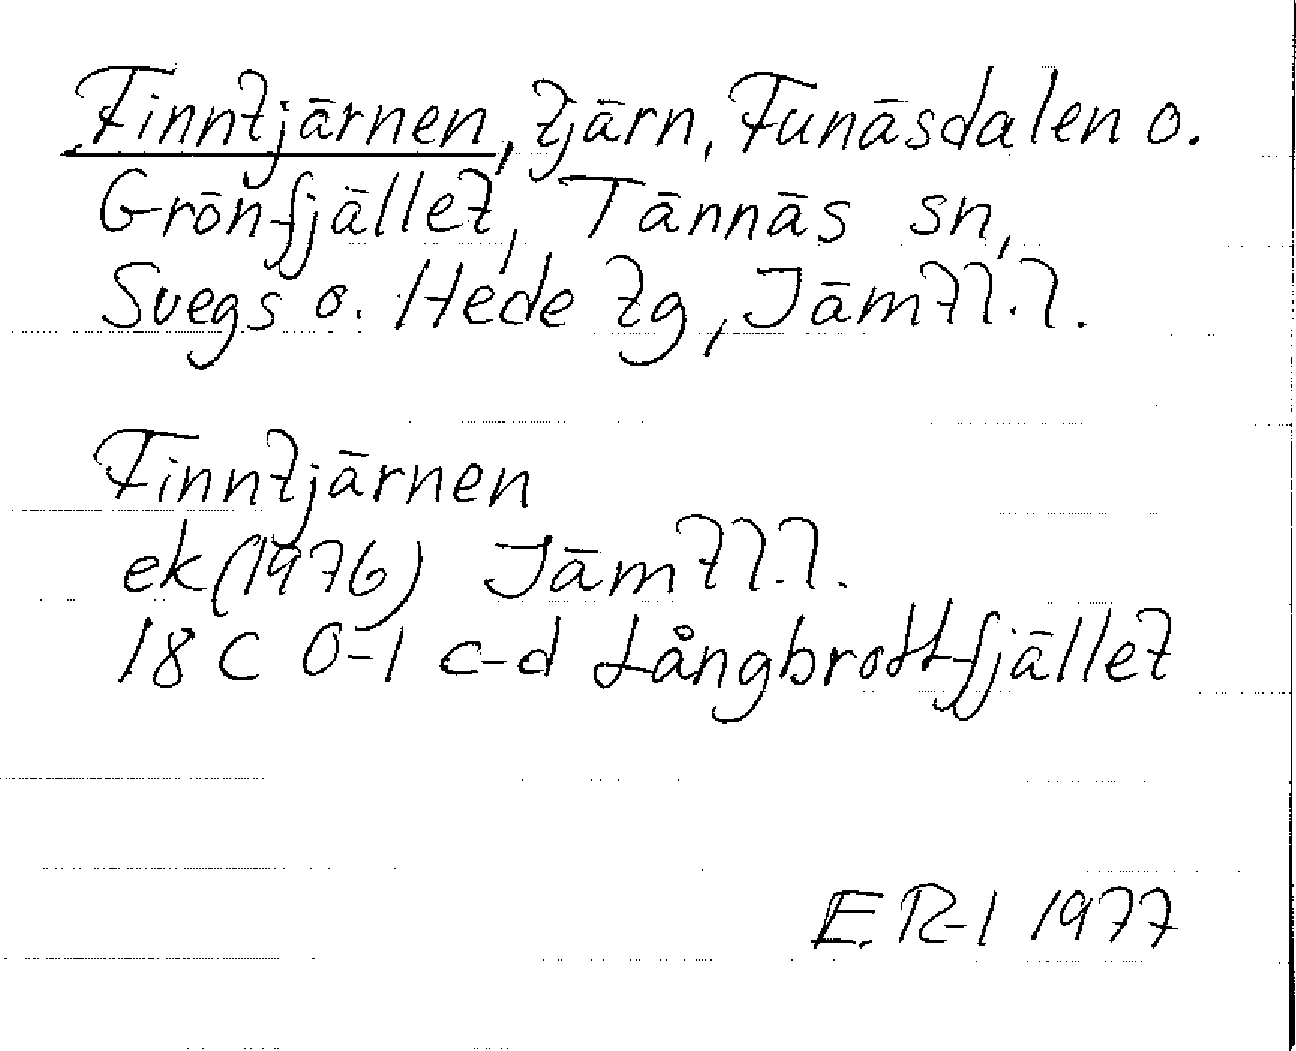 Finntjärnen, tjärn, Funäsdalen o.
Grönfjället, Tännäs sn,
Svegs o. Hede tg, Jämtl.l.
Finntjärnen
ek (1976) Jämtl.l.
18 C 0-1 c-d Långbrottfjället
E. R-l 1977